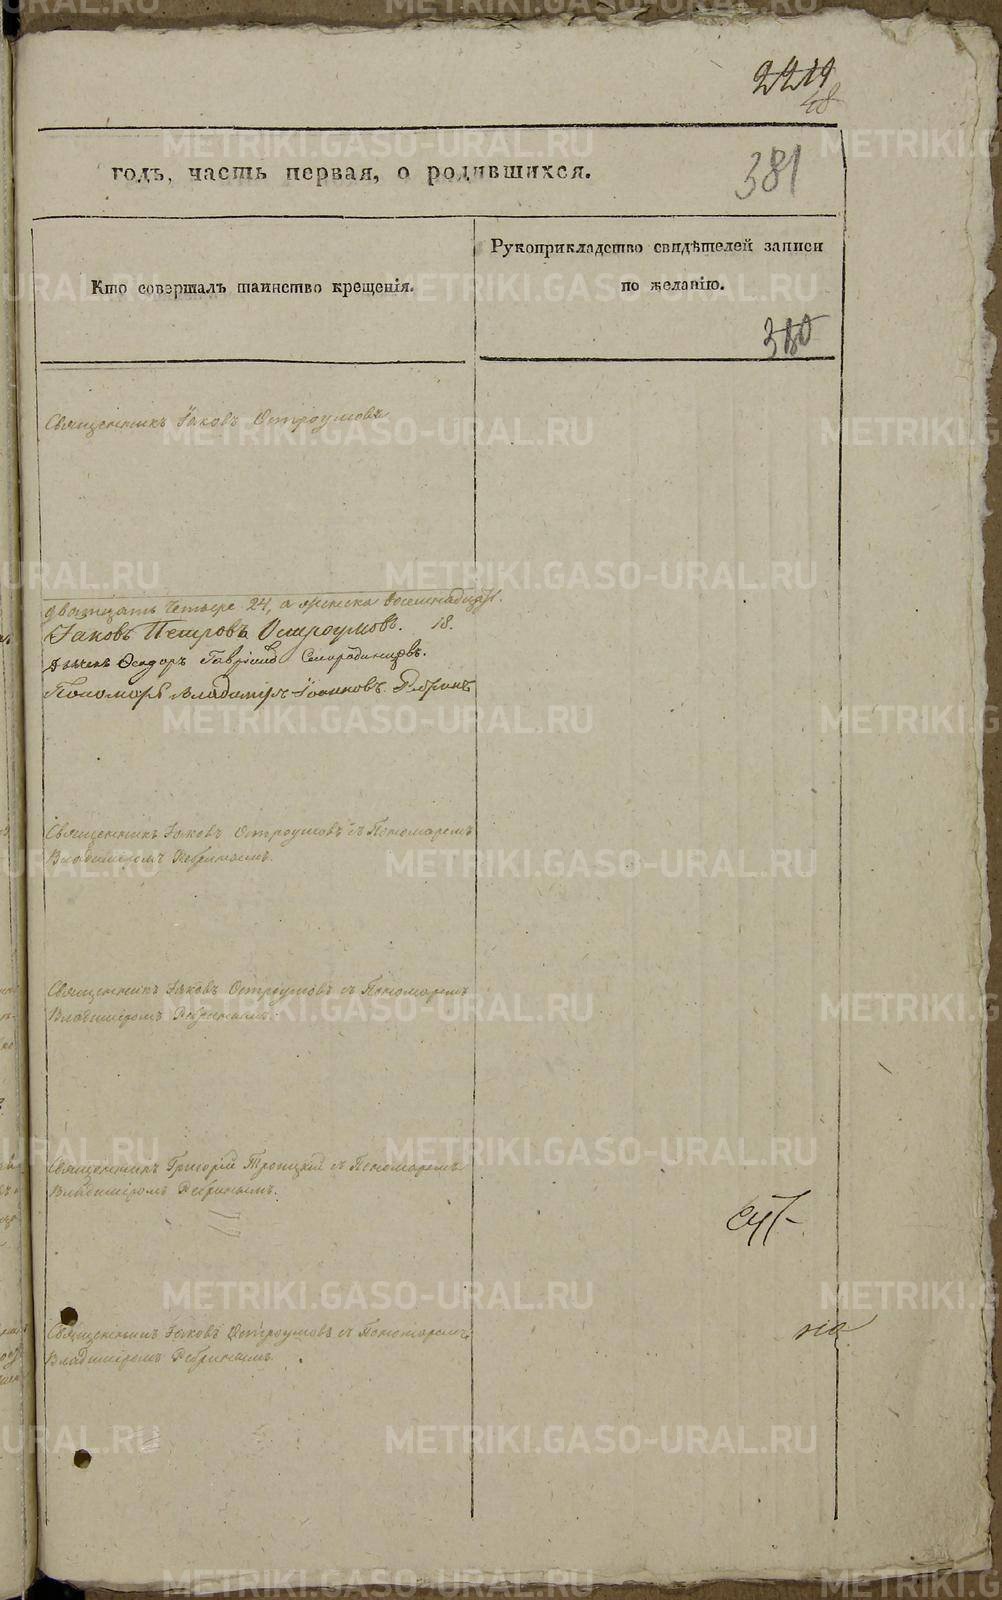 2219
48
годъ, часть первая, о родившихся.
381
Кто совершалъ таинство крещенія.
Рукоприкладство свидѣтелей записи
по желанію.
380
Священникъ Іаковъ Остроумовъ
двадцать четыре 24, а женска восемнадцать.
Іаковъ Петровъ Остроумовъ. 18.
Дьячекъ Ѳеодоръ Гавріиловъ Смородинцовъ.
Пономарь Владимиръ Іоанновъ Ребринъ
Священникъ Іаковъ Остроумовъ съ Пономаремъ
Владиміромъ Ребринымъ.
Священникъ Іаковъ Остроумовъ съ Пономаремъ
Владиміромъ Ребринымъ.
Священникъ Григорій Троицкій съ Пономаремъ
Владиміромъ Ребринымъ.
Священникъ Іаковъ Остроумовъ съ Пономаремъ
Владиміромъ Ребринымъ.
METRIKI.GASO-URAL.RU